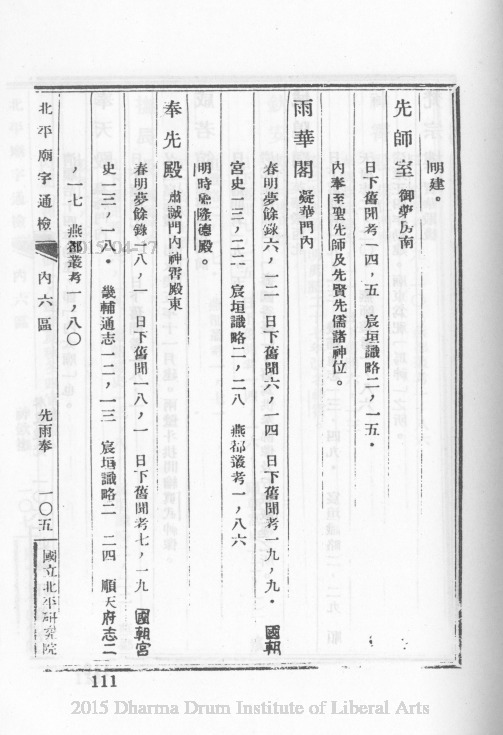 明建。
先師室 御藥房南
日下舊聞考一四,五 宸垣識略二,一五.
內奉至聖先師及先賢先儒諸神位。
雨華閣 凝華門內
春明夢餘錄六,一二 日下舊聞六,一四 日下舊聞考一九,九. 國朝
宮史一三,二二 宸垣識略二,二八 燕都叢考一,八六
明時隆德殿。
奉先殿 肅誠門內神霄殿東
春明夢餘錄一八,一 日下舊聞一八,一 日下舊聞考七,一九 國朝宮
史一三,一八. 畿輔通志一二,一三 宸垣識略二 二四 順天府志二
,一七 燕都叢考一,八〇
北平廟宇通檢 內六區 先雨奉 一〇五 國立北平研究院
2015/04/17
111
2015 Dharma Drum Institute of Liberal Arts